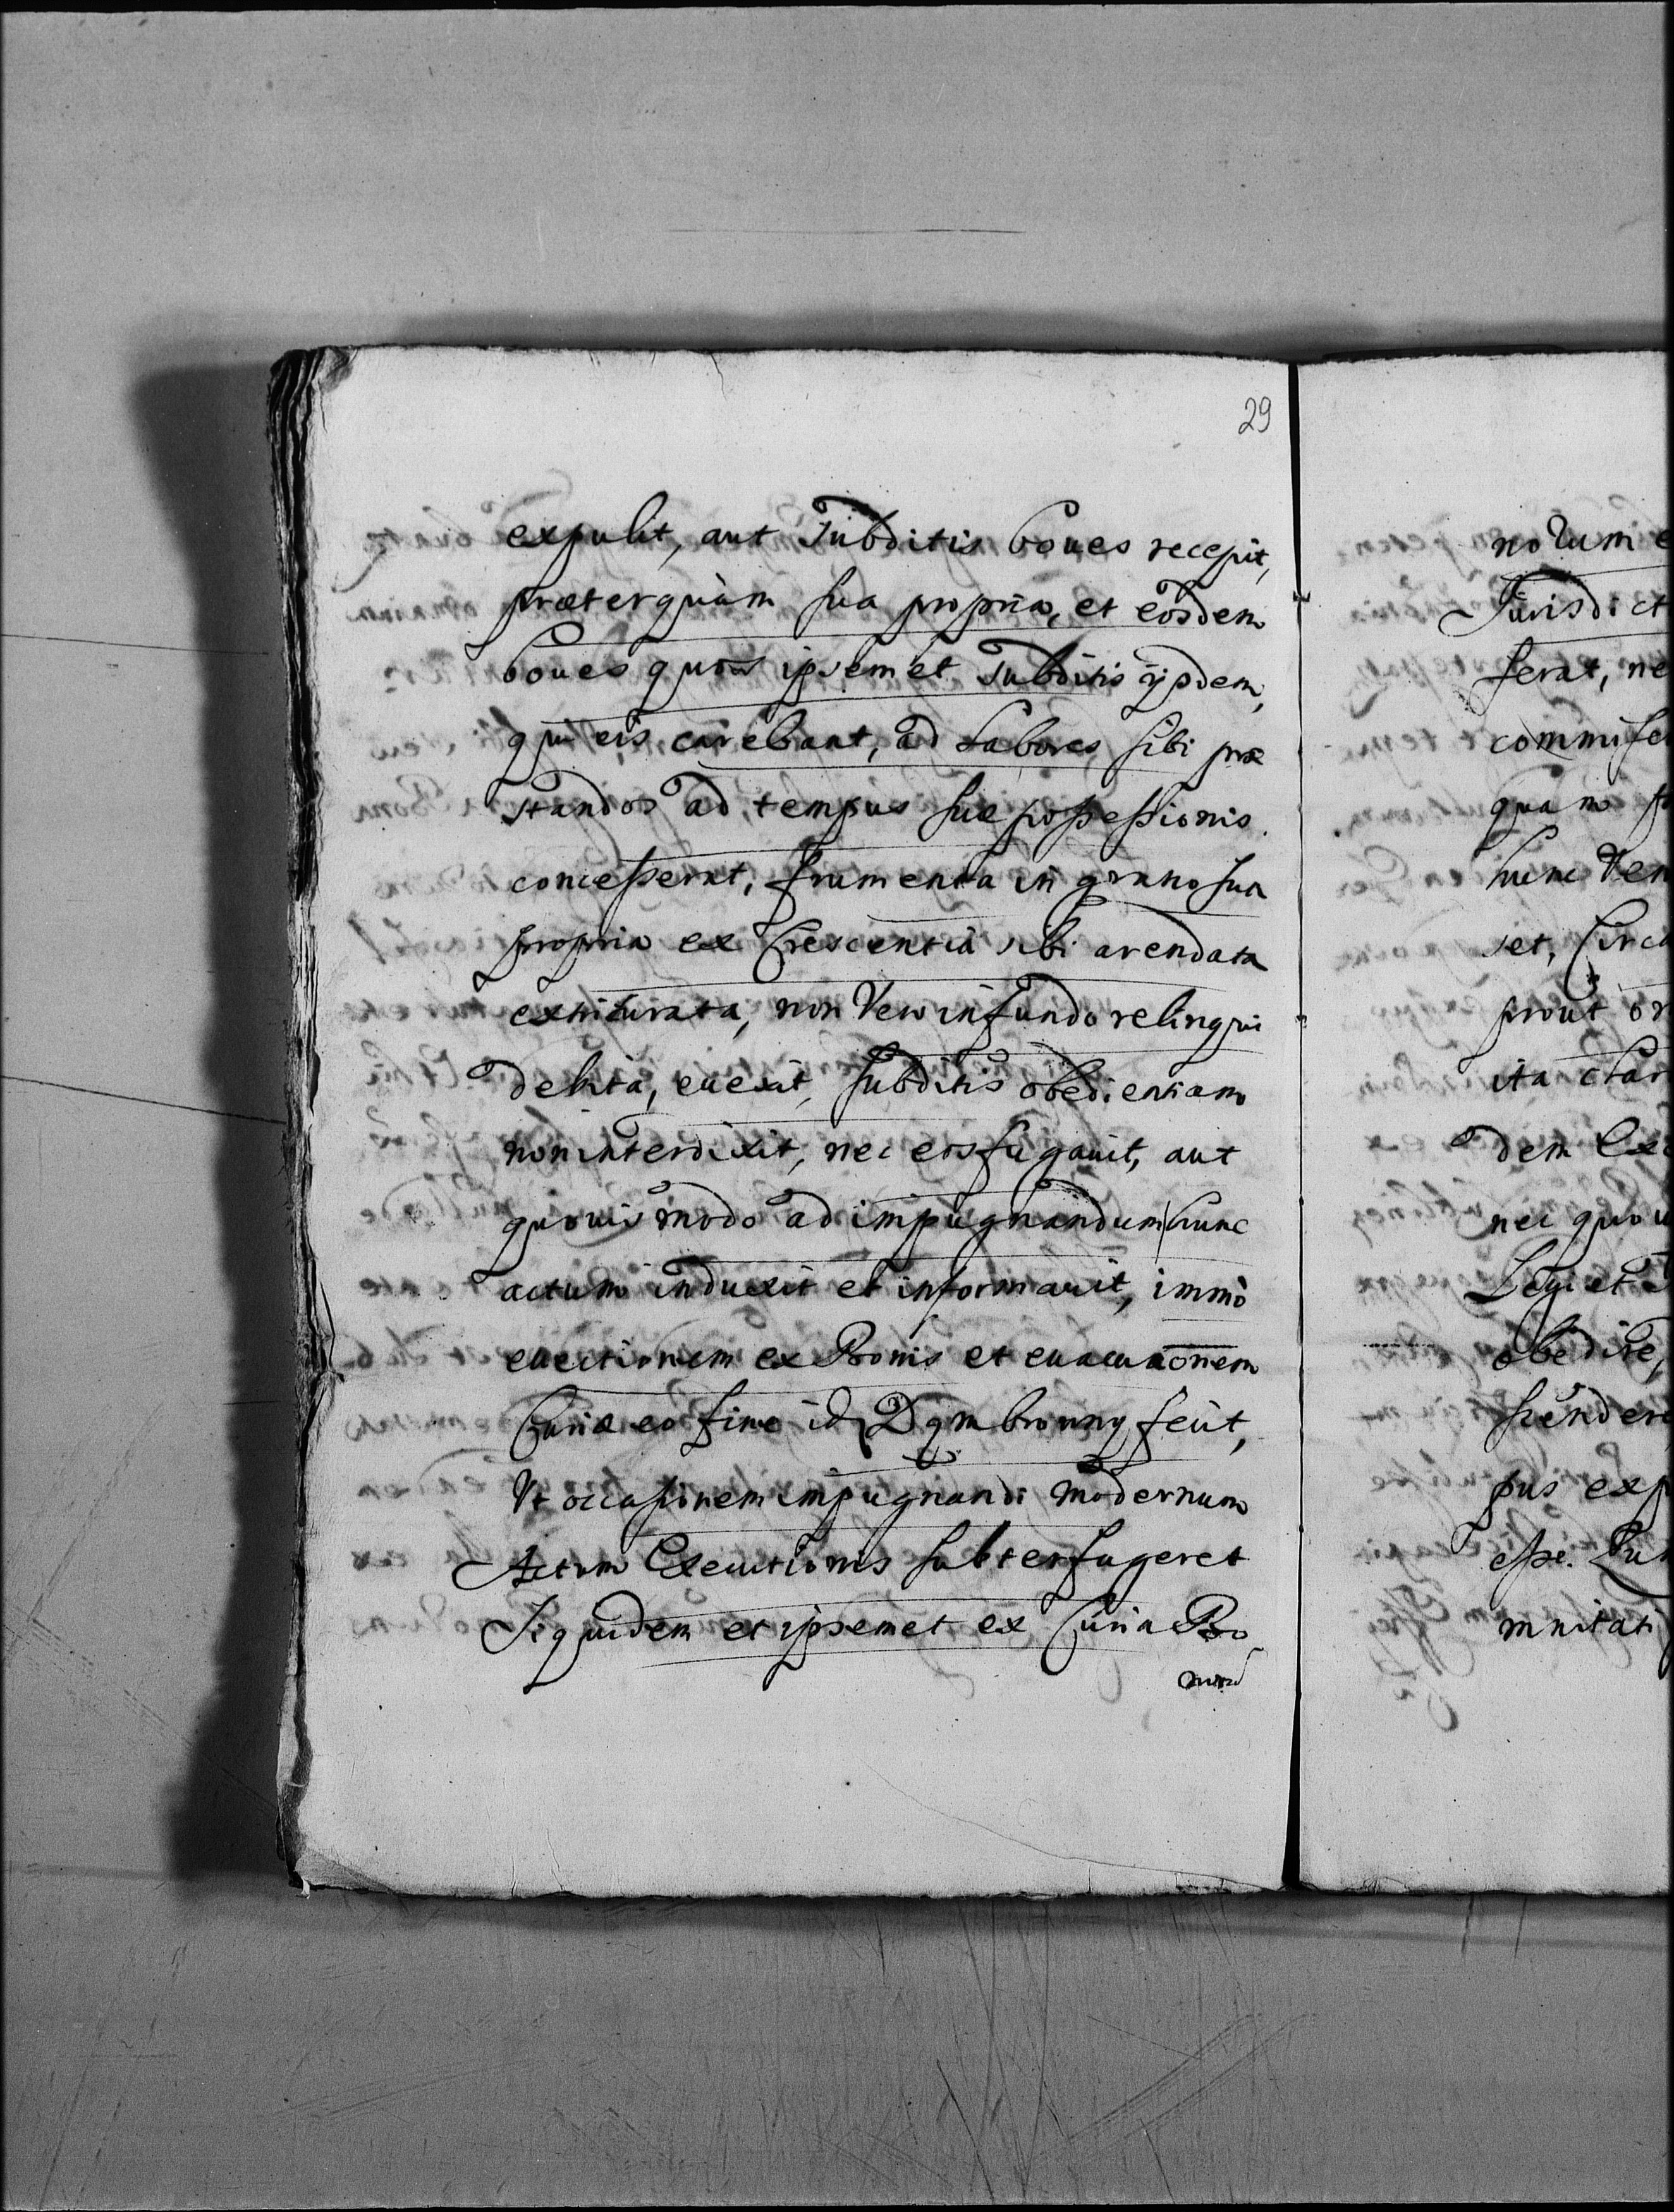 29
expulit, aut Subditis boues recepit,
præterquàm sua propria, et eosdem
boues quos ipsemet Subditis ijsdem,
qui eis carebant, ad Labores sibi præ
standos ad tempus suæ possessionis
concesserat, frumenta in grano sua
propria ex Crescentiâ sibi arendata
extriturata, non Vero in fundo relinqui
debita, euexit, Subditis obedientiam
non interdixit, nec eos fugauit, aut
quouis modo ad impugnandum hunc
actum induxit et informauit, immò
euectionem ex Bonis et euacuaōnem
Curiæ eo fine id fecit,
Vt occasionem impugnandi modernum
Actum Executionis subterfugeret
Siquidem et ipsemet ex Curia Bo
norum
Jurisdict
ferat, ne
commise
quam
hunc Ven
set, Circa
prout or
ita
dem Exe
nec quou
Legi et
obedire,
pendere
pus exp
esse.
mnitati